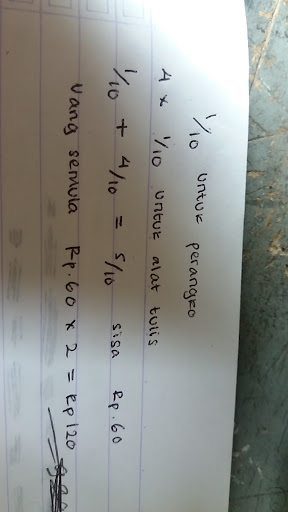 1/10 untuk perangko
4 x 1/10 untuk alat tulis
1/10 + 4/10 = 5/10 sisa Rp.60
Uang semula Rp.60 x 2 = Rp120